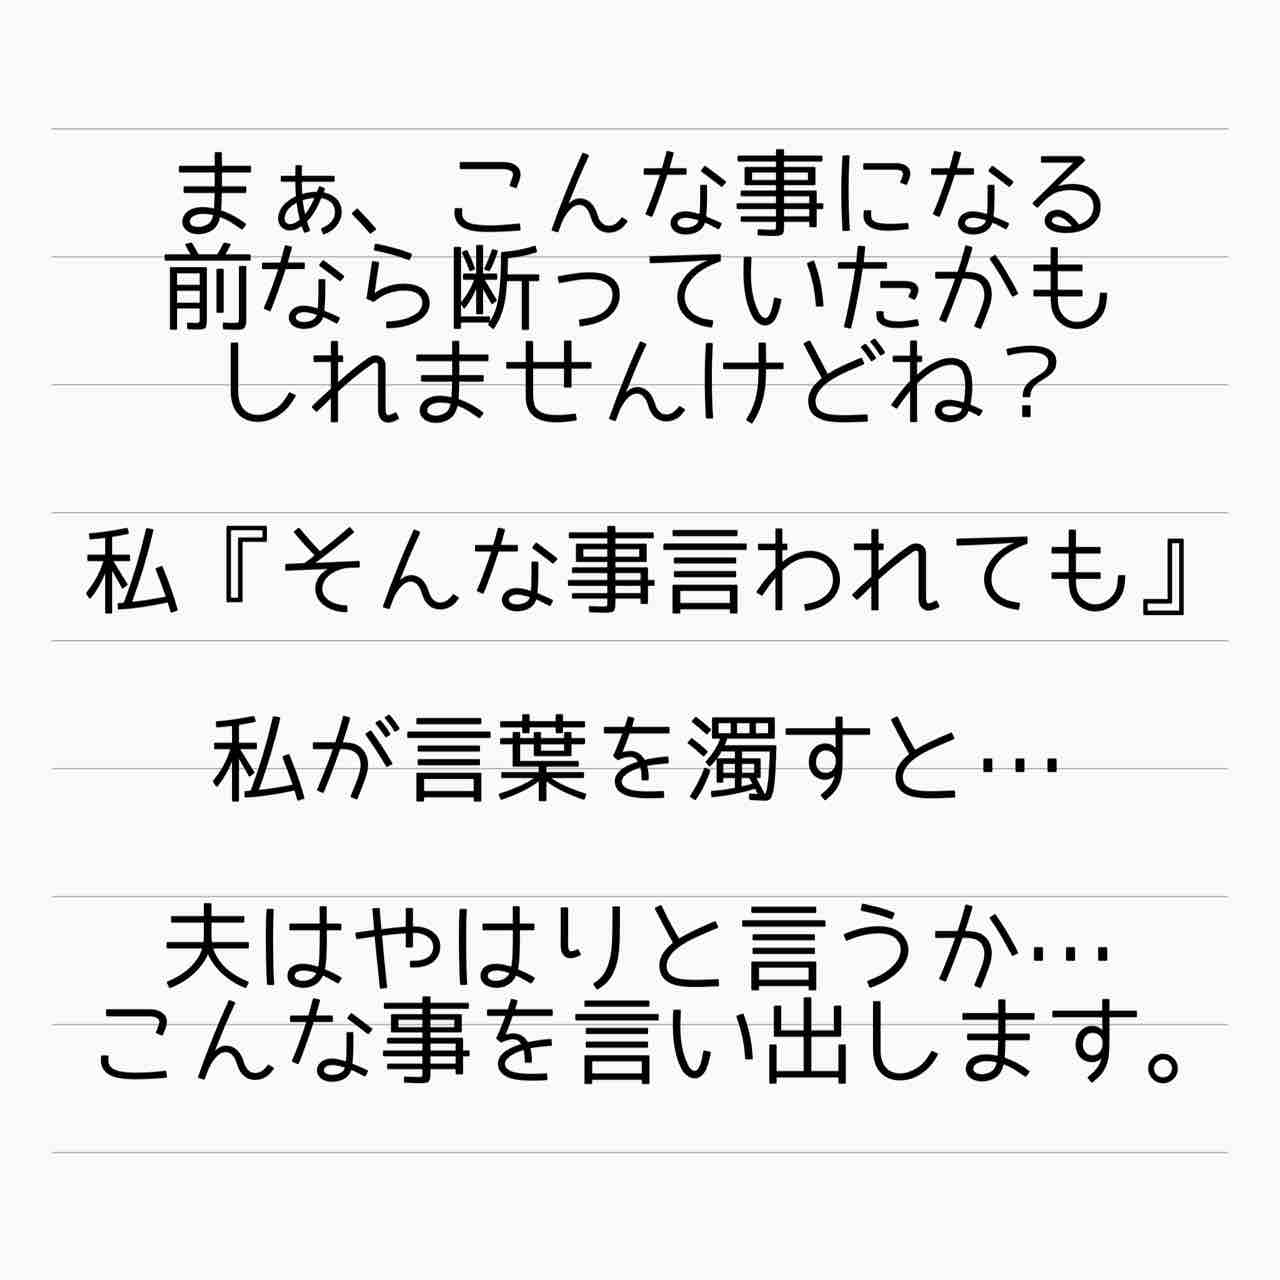 まぁ、こんな事になる
前なら断っていたかも
しれませんけどね？
私『そんな事言われても』
私が言葉を濁すと…
夫はやはりと言うか…
こんな事を言い出します。